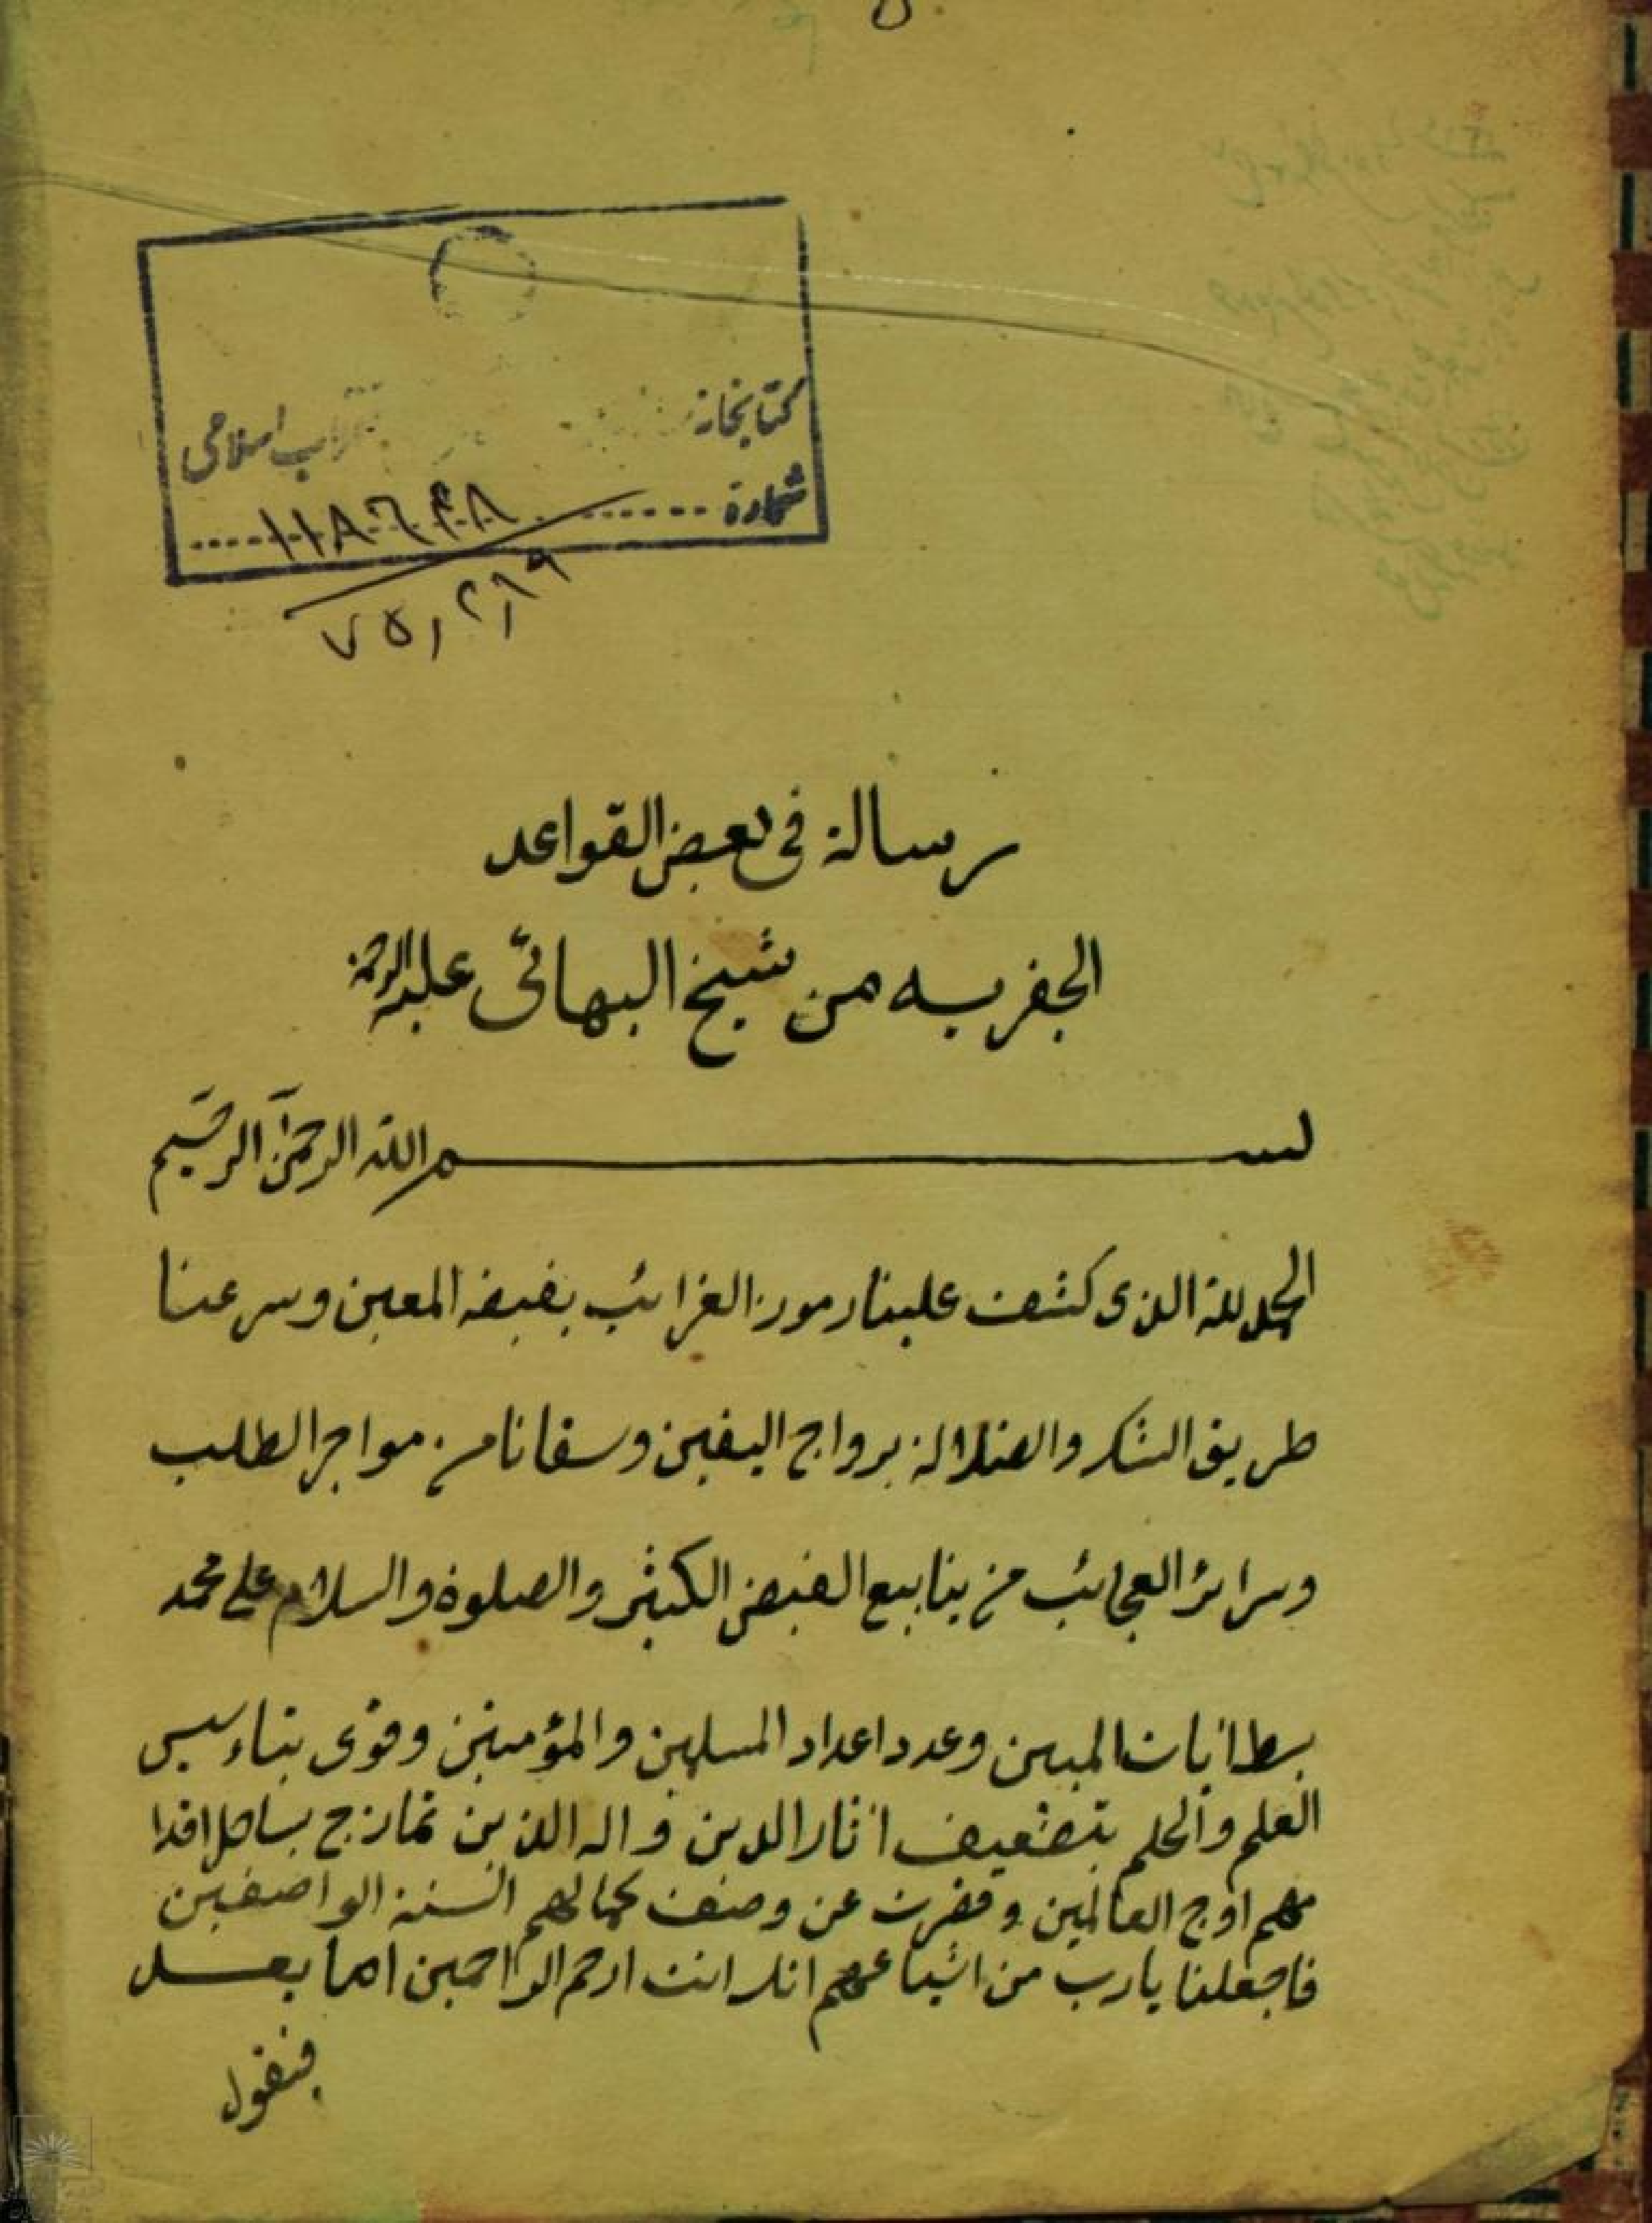 كتابخانه انقلاب اسلامی
شماره ١١٨٦٣٨
٧٥١٢١٩
رسالة فی بعض القواعد
الجفریه من شیخ البهائی علیه الرحمة
بسم الله الرحمن الرحیم
الحمد لله الذی كشف علینا رموز الغرائب بفیضه المعین وسرعنا
طریق الشك والضلالة برواج الیقین وسقانا من مواجر الطلب
وسرائر العجائب من ینابیع الفیض الكثیر والصلوة والسلام علی محمد
بسط آیات المبین وعدد اعداد المسلمین والمؤمنین وقوی بتاسیس
العلم والحلم بتضعیف اثار الدین واله الذین تمازج بساط اقدا
مهم اوج العالمین وقصرت عن وصف كمالهم السنة الواصفین
فاجعلنا یارب من اشیاعهم انك انت ارحم الراحمین اما بعد
فنقول